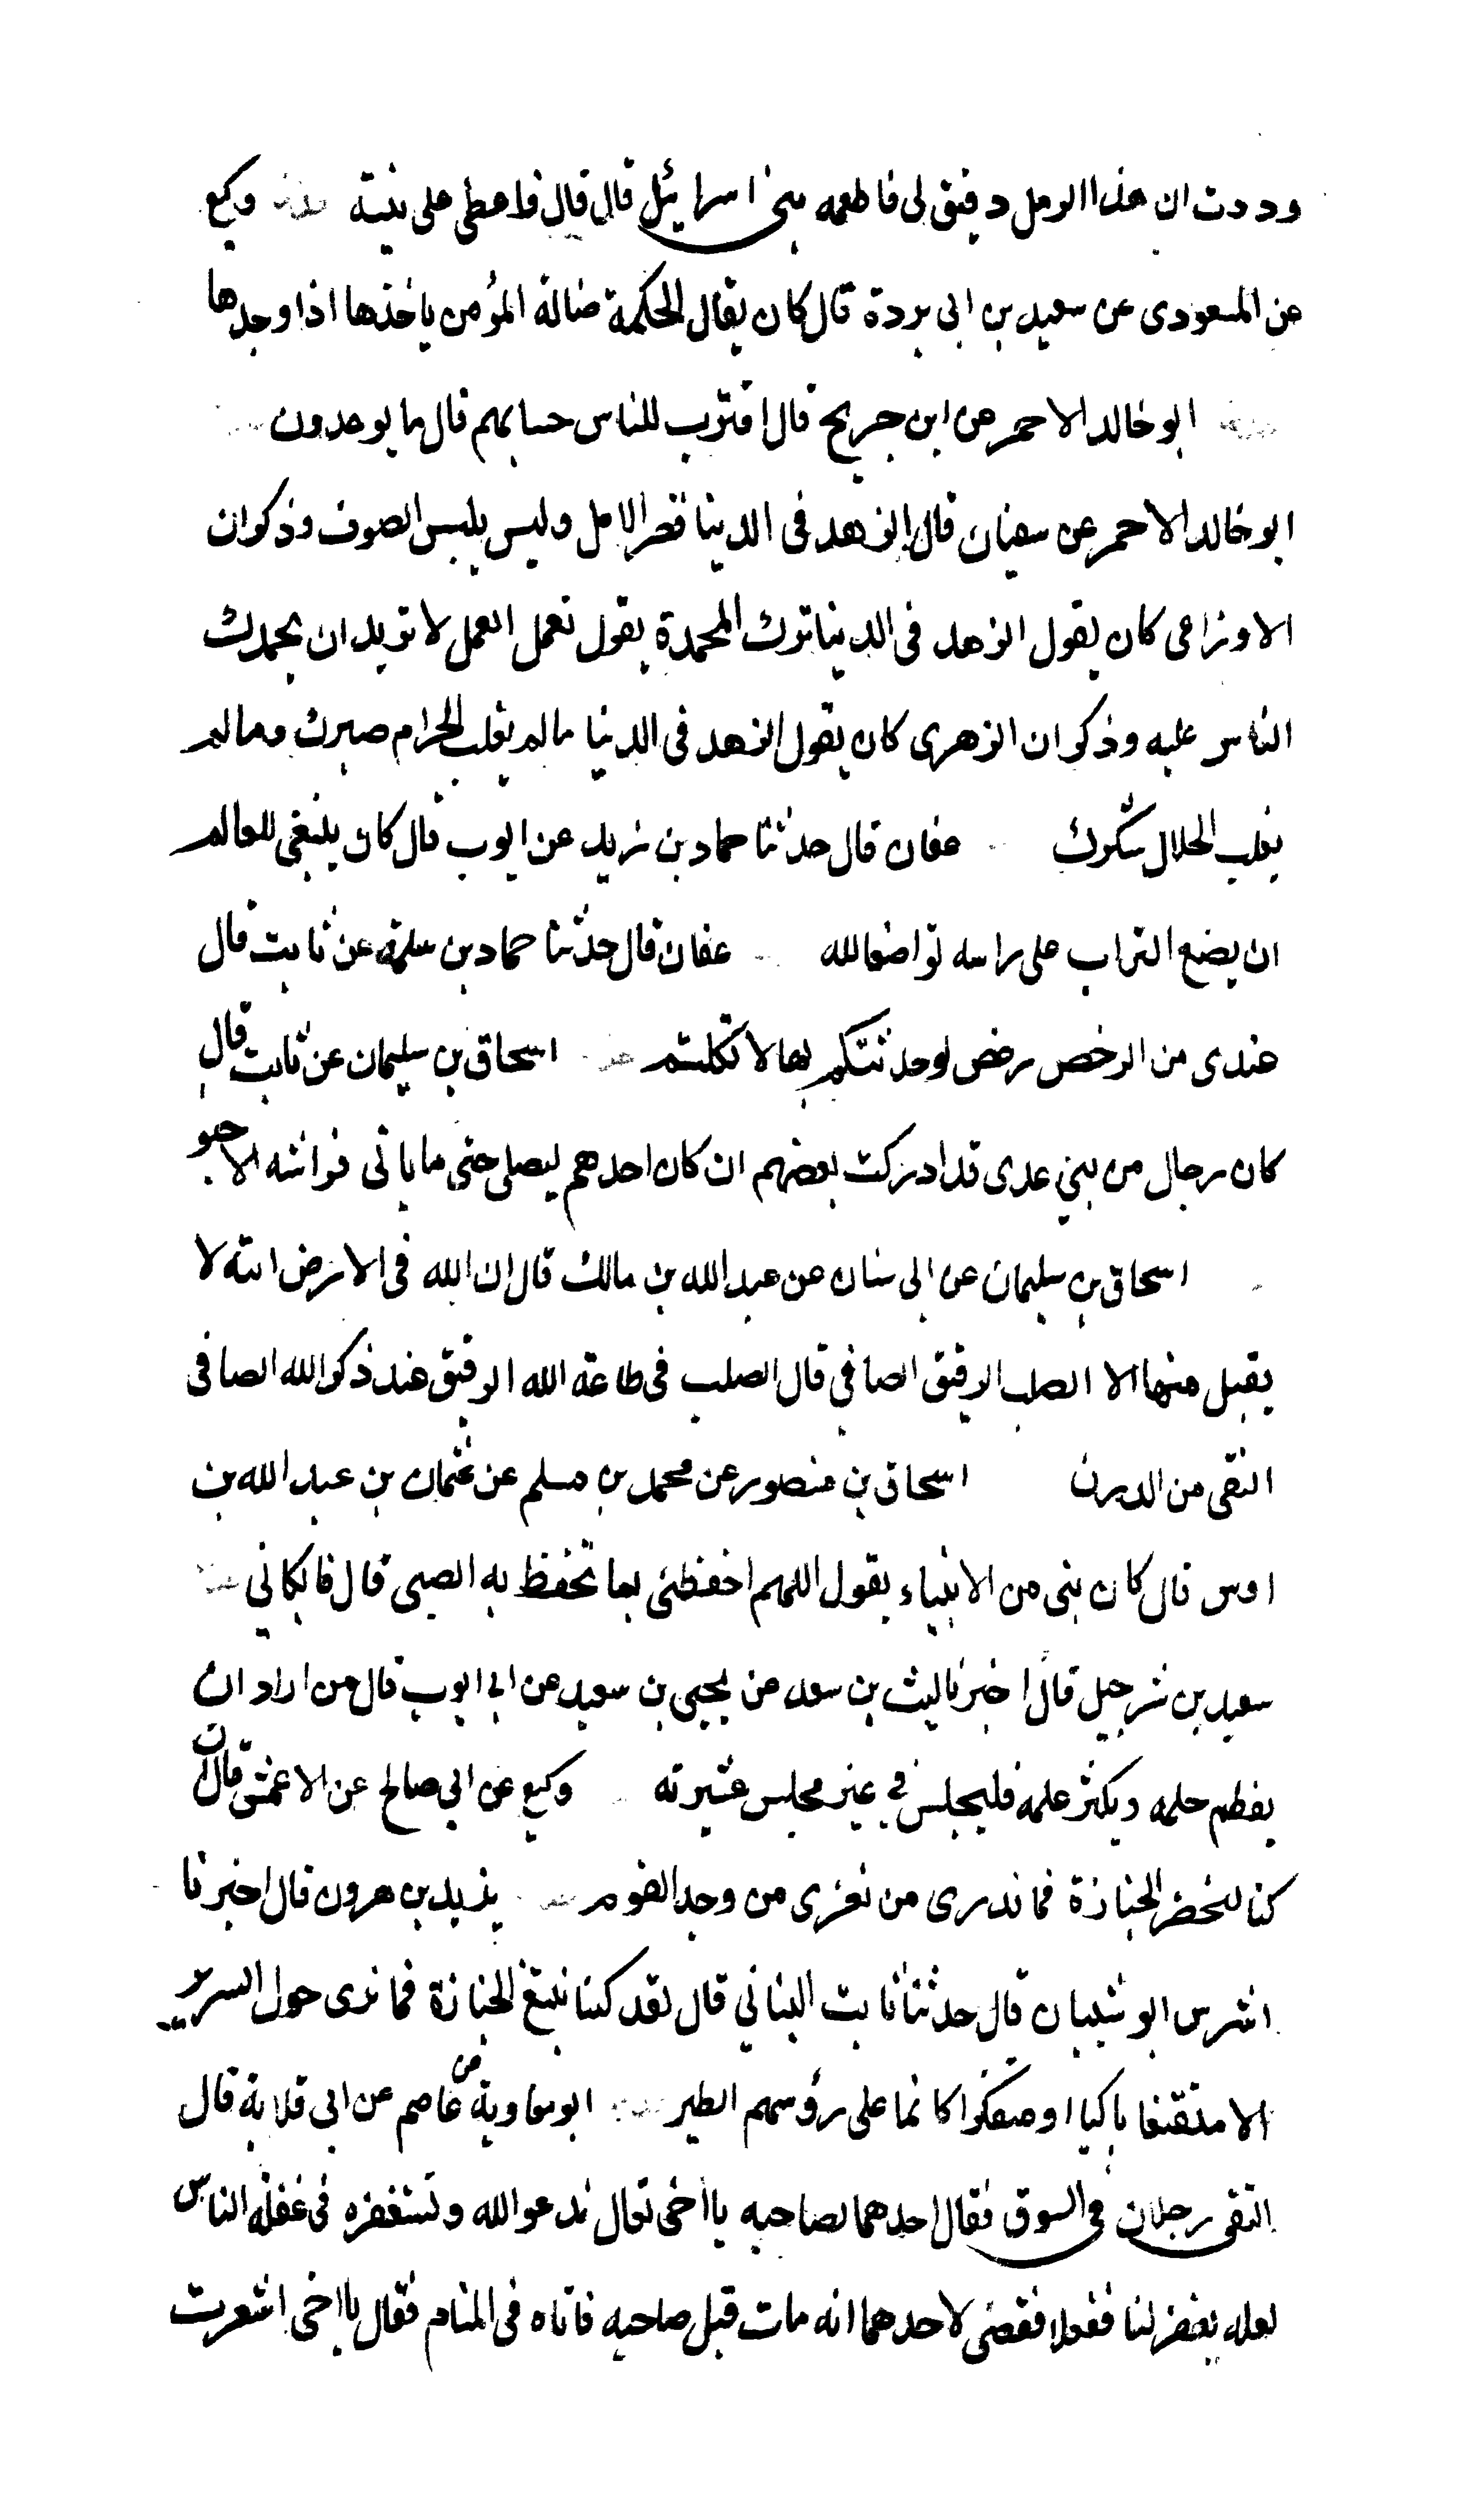 وددت ان هذا الرمل دقيق لى فاطعمه بنى اسرائيل قال قال فاعطى على نيته وكيع
عن المسعودى عن سعيد بن ابى بردة قال كان يقال الحكمة ضالة المؤمن ياخذها اذا وجدها
ابو خالد الاحمر عن ابن جريج قال اقترب للناس حسابهم قال ما يوعدون
ابو خالد الاحمر عن سفيان قال الزهد فى الدينا قصر الامل وليس بلبس الصوف وذكر ان
الاوزاعى كان يقول الزهد فى الدينا ترك المحمدة يقول تعمل العمل لا تريد ان يحمدك
الناس عليه وذكر ان الزهرى كان يقول الزهد فى الدنيا مالم يغلب الحرام صبرك ومالم
يغلب الحلال شكرك عفان قال حدثنا حماد بن زيد عن ايوب قال كان ينبغى للعالم
ان يضع التراب على راسه تواضعا لله عفان قال حدثنا حماد بن سلمة عن ثابت قال
عندى من الرخص رخص لوحدثتكم بها لاتكلتم اسحاق بن سليمان عن ثابت قال
كان رجال من بنى عدى قد ادركت بعضهم ان كان احدهم ليصلى حتى ما ياتى فراشه الاحبو
اسحاق بن سليمان عن ابى سنان عن عبد الله بن مالك قال ان لله فى الارض انية لا
يقبل منها الا الصلب الرقيق الصافى قال الصلب فى طاعة الله الرقيق عند ذكر الله الصافى
النقى من الدرن اسحاق بن منصور عن محمد بن مسلم عن عثمان بن عبد الله بن
اوس قال كان نبى من الانبياء يقول اللهم احفظنى بما تحفظ به الصبى قال فابكانى
سعيد بن شرحبيل قال اخبرنا ليث بن سعد عن يحيى بن سعيد عن ابى ايوب قال من اراد ان
يعظم حلمه ويكثر علمه فليجلس فى غير مجلس عشيرته وكيع عن ابى صالح عن الاعمش قال ان
كنا لنحضر الجنازة فما ندرى من نعزى من وجد القوم يزيد بن هرون قال اخبرنا
اشرس ابو شيبان قال حدثنا ثابت البنانى قال لقد كنا نتبع الجنازة فما نرى حول السرير
الا متقنعا باكيا او متفكرا كانما على رؤسهم الطير ابو معاوية عن عاصم عن ابى قلابة قال
التقى رجلان فى السوق فقال احدهما لصاحبه يا اخى تعال ندعو الله ونستغفره فى غفلة الناس
لعله يغفر لنا ففعلا فقضى لاحدهما انه مات قبل صاحبه فاتاه فى المنام فقال يا اخى اشعرت